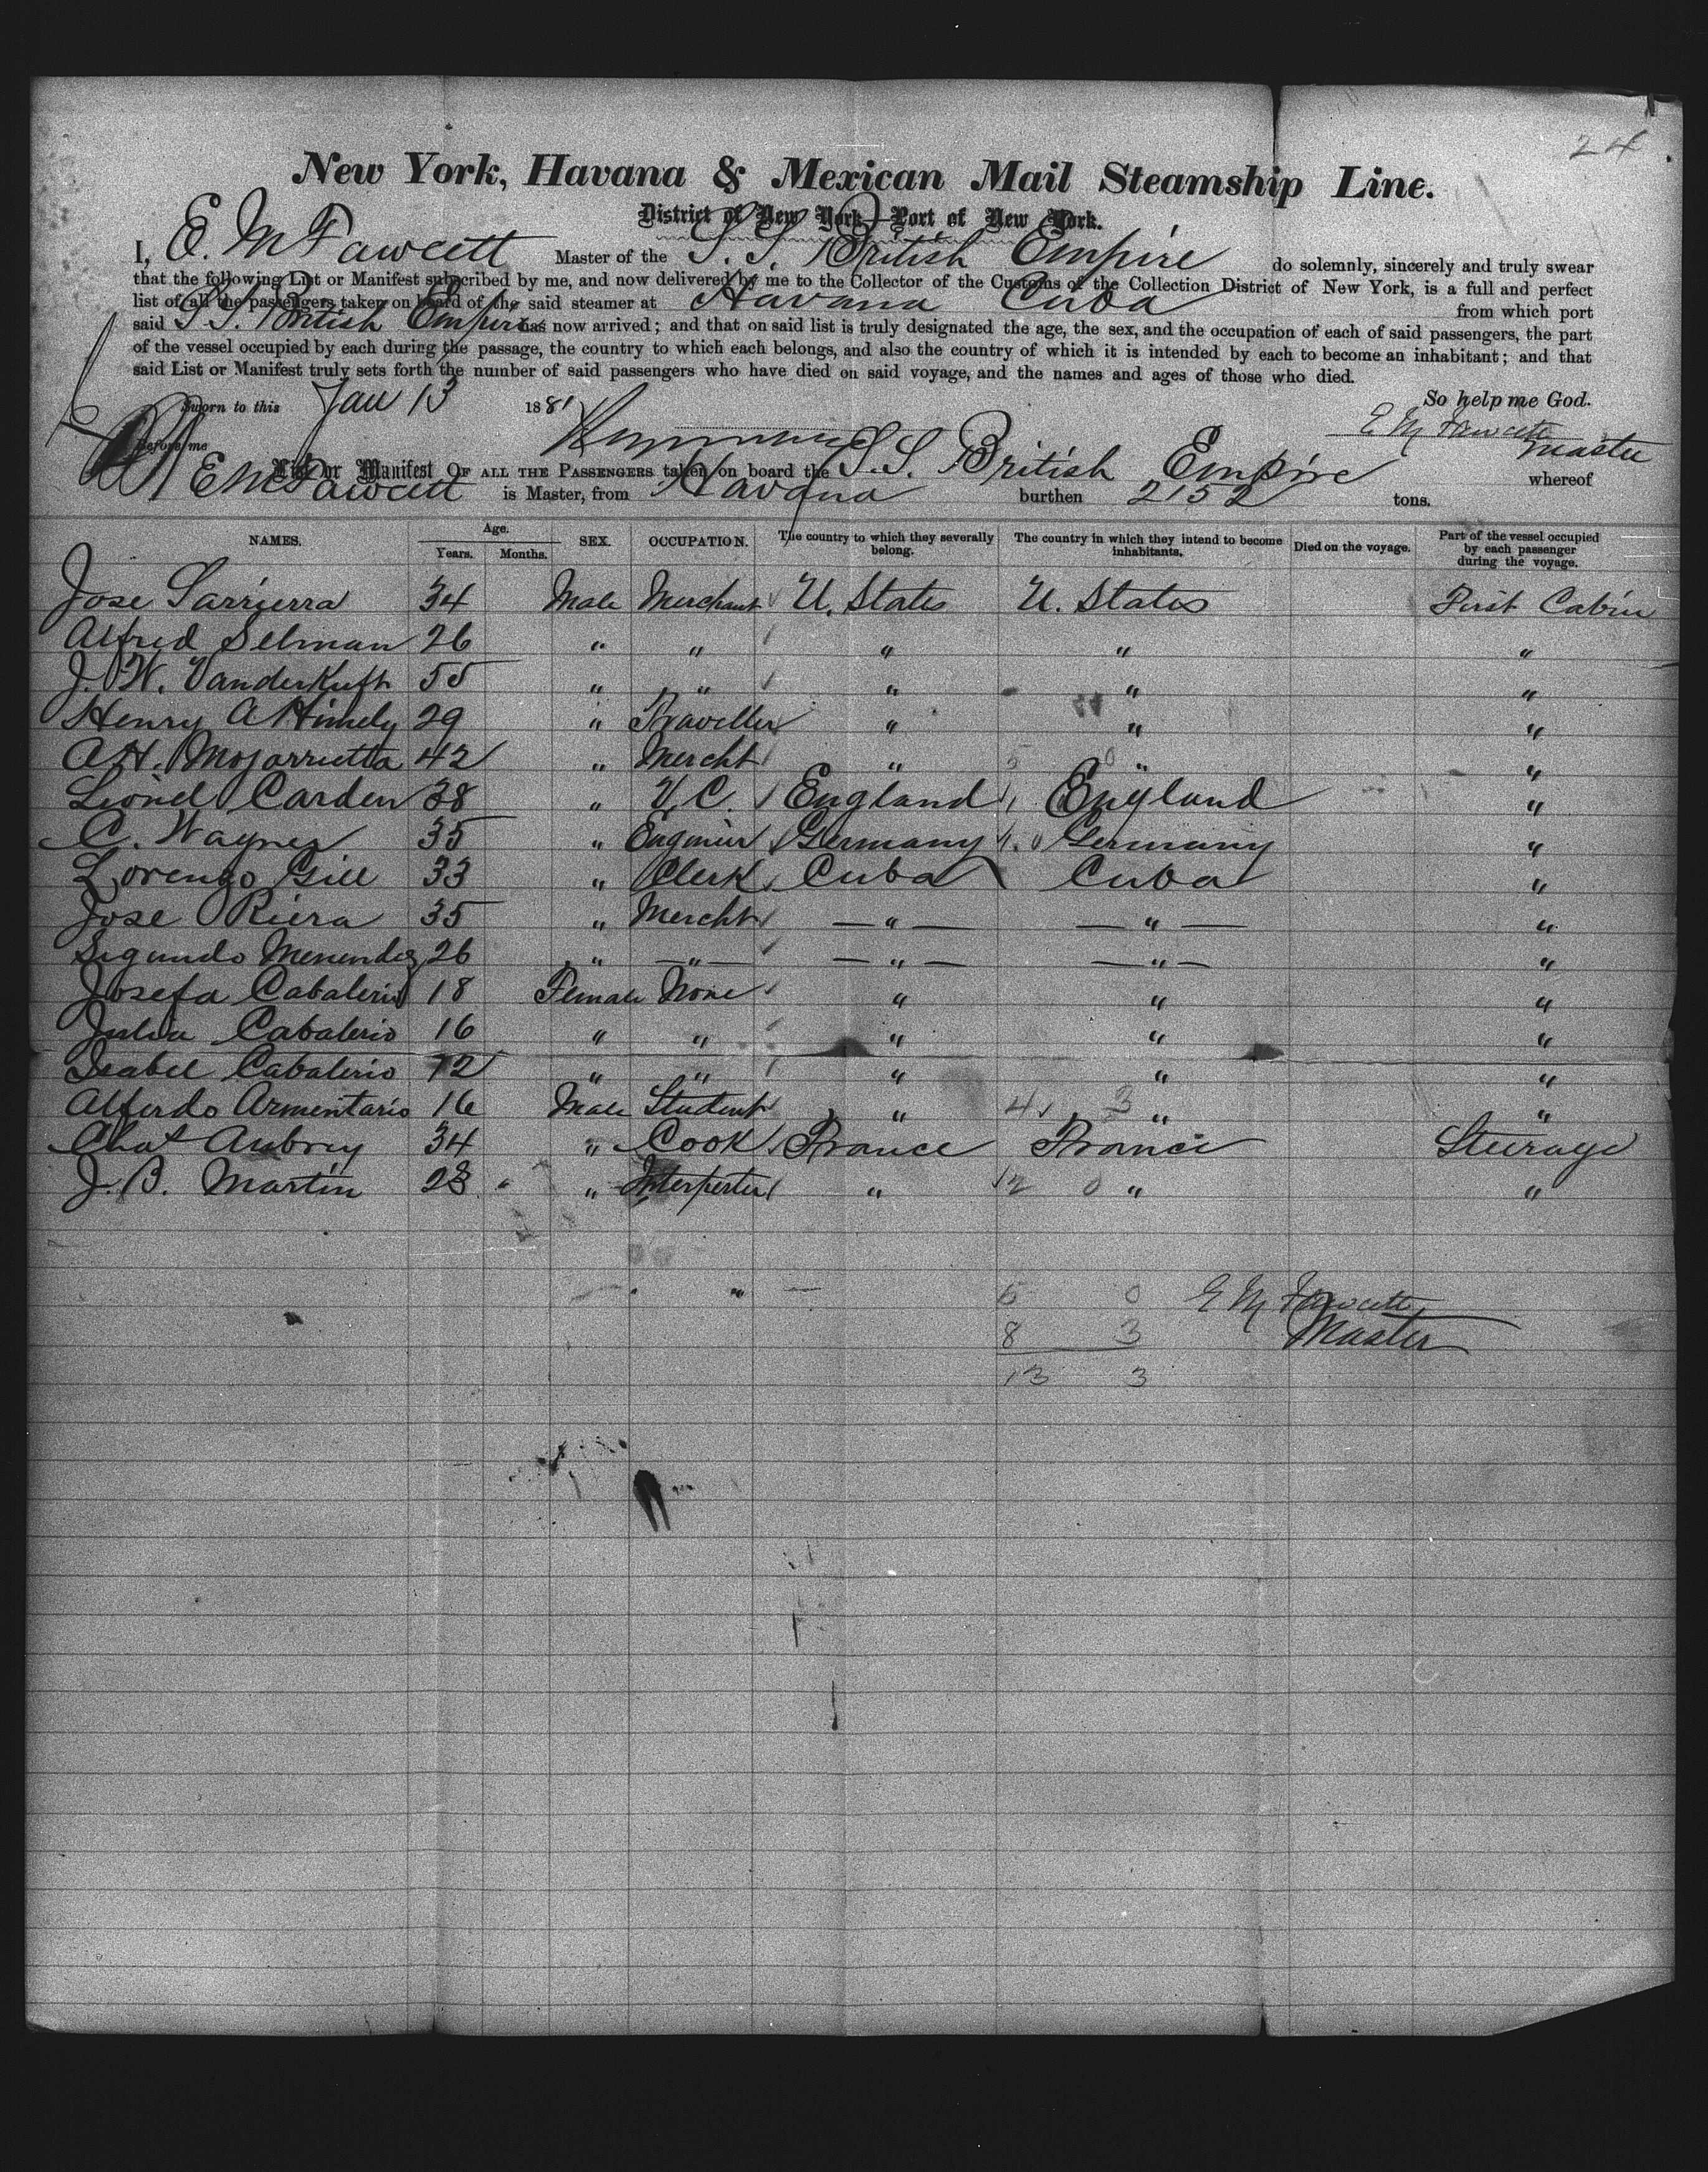 24
New York, Havana & Mexican Mail Steamship Line.
District of New York—Port of New York.
I, E. M Fawcett Master of the S. S. British Empire do solemnly, sincerely and truly swear
that the following List or Manifest subscribed by me, and now delivered by me to the Collector of the Customs of the Collection District of New York, is a full and perfect
list of all the passengers taken on board of the said steamer at Havana Cuba from which port
said S. S. British Empire has now arrived; and that on said list is truly designated the age, the sex, and the occupation of each of said passengers, the part
of the vessel occupied by each during the passage, the country to which each belongs, and also the country of which it is intended by each to become an inhabitant; and that
said List or Manifest truly sets forth the number of said passengers who have died on said voyage, and the names and ages of those who died.
Sworn to this Jan 13 1881 So help me God.
E M Fawcett
Before me Master
List or Manifest OF ALL THE PASSENGERS taken on board the S.S. British Empire whereof
E M Fawcett is Master, from Havana burthen 2152 tons.
NAMES. Age. Years. Months. SEX. OCCUPATION. The country to which they severally belong. The country in which they intend to become inhabitants. Died on the voyage. Part of the vessel occupied by each passenger during the voyage.
Jose Sarrierra 34 Male Merchant U. States U. States First Cabin
Alfred Selman 26 " " " " "
J. W. Vanderkuft 55 " " " " "
Henry A Himely 29 " Traveller " " "
A H. Mojarrietta 42 " Mercht " " "
Lionel Carden 38 " V. C. England England "
C. Wagner 35 " Engineer Germany Germany "
Lorenzo Gill 33 " Clerk Cuba Cuba "
Jose Riera 35 " Mercht — " — — " — "
Segundo Menendez 26 " — " — — " — — " — "
Josefa Cabalerio 18 Female None " " "
Julia Cabalerio 16 " " " " "
Isabel Cabalerio 12 " " " " "
Alferdo Armentario 16 Male Student " 4 3 " "
Chat Aubrey 34 " Cook France France Steerage
J. B. Martin 28 " Interperter " 12 0 " "
5 0 E M Fawcett
8 3 Master
13 3